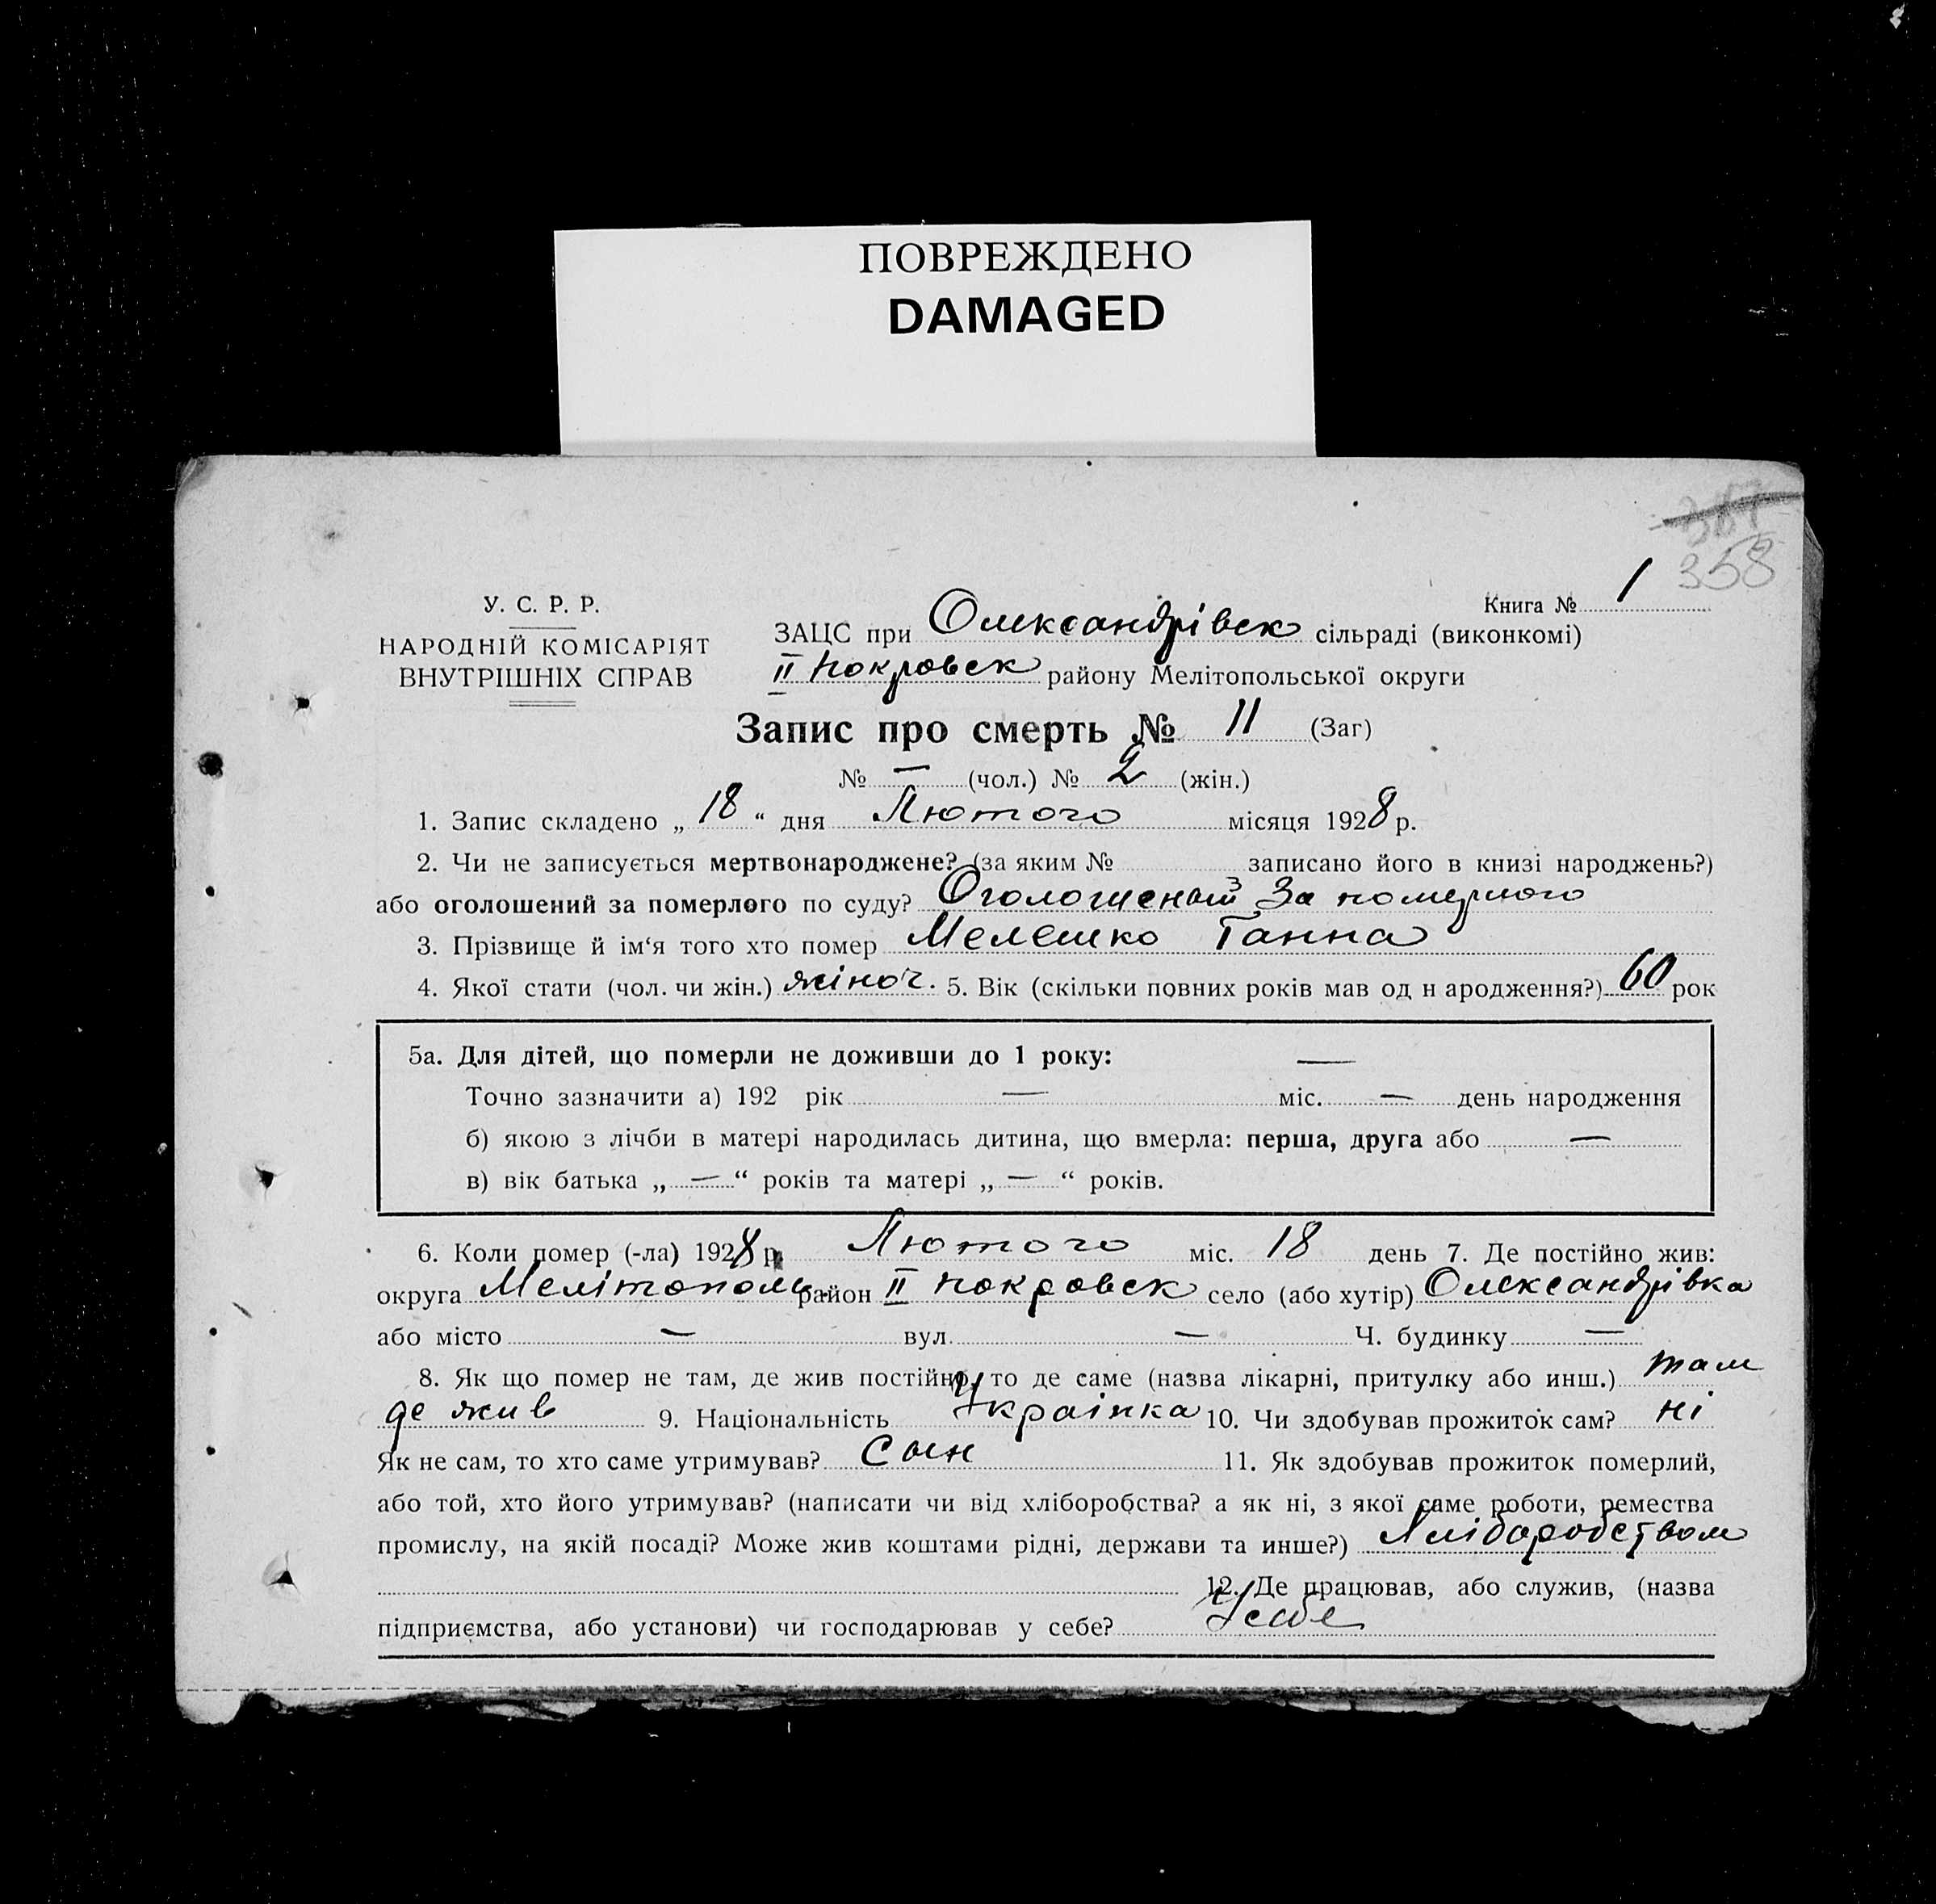 ПОВРЕЖДЕНО
DAMAGED
358
У. С. Р. Р.
НАРОДНІЙ КОМІСАРІЯТ
ВНУТРІШНІХ СПРАВ
Книга № 1
ЗАЦС при Олександрівск сільраді (виконкомі)
II Покровск району Мелітопольської округи
Запис про смерть № 11 (Заг)
№ — (чол.) № 2 (жін.)
1. Запис складено „ 18 “ дня Лютого місяця 1928 р.
2. Чи не записується мертвонароджене? (за яким № записано його в книзі народжень?)
або оголошений за померлого по суду? За померлого
3. Прізвище й ім‘я того хто помер Мелешко Ганна
4. Якої стати (чол. чи жін.) жіноч. 5. Вік (скільки повних років мав од н ародження?) 60 рок
5а. Для дітей, що померли не доживши до 1 року: —
Точно зазначити а) 192 рік — міс. — день народження
б) якою з лічби в матері народилась дитина, що вмерла: перша, друга або —
в) вік батька „ — “ років та матері „ — “ років.
6. Коли помер (-ла) 1928 р. Лютого міс. 18 день 7. Де постійно жив:
округа Мелітополь. район II Покровск село (або хутір) Олександрівка
або місто — вул. — Ч. будинку —
8. Як що помер не там, де жив постійно, то де саме (назва лікарні, притулку або инш.) там
де жив 9. Національність Українка 10. Чи здобував прожиток сам? ні
Як не сам, то хто саме утримував? Сын 11. Як здобував прожиток померлий,
або той, хто його утримував? (написати чи від хліборобства? а як ні, з якої саме роботи, ремества
промислу, на якій посаді? Може жив коштами рідні, держави та инше?) Хліборобством
12. Де працював, або служив, (назва
підприємства, або установи) чи господарював у себе? У себе